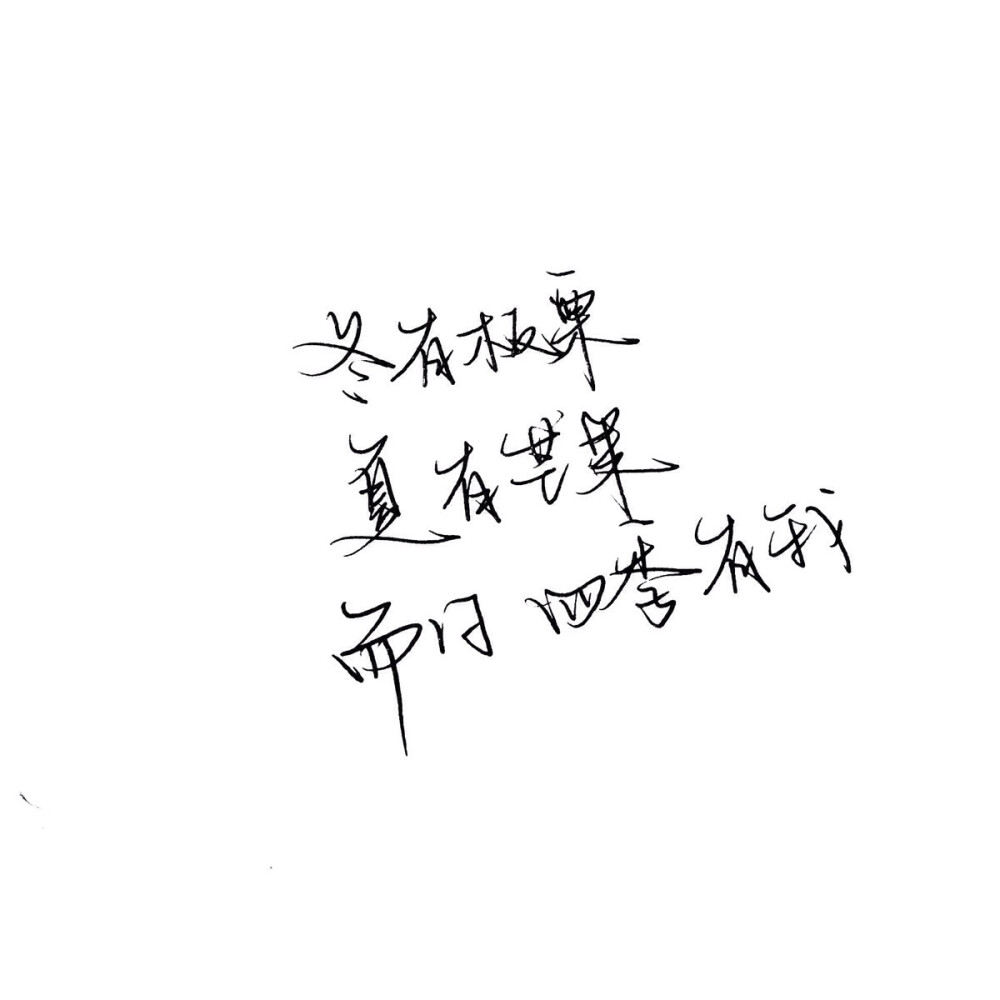 冬有板栗
夏有芒果
而同四季有我